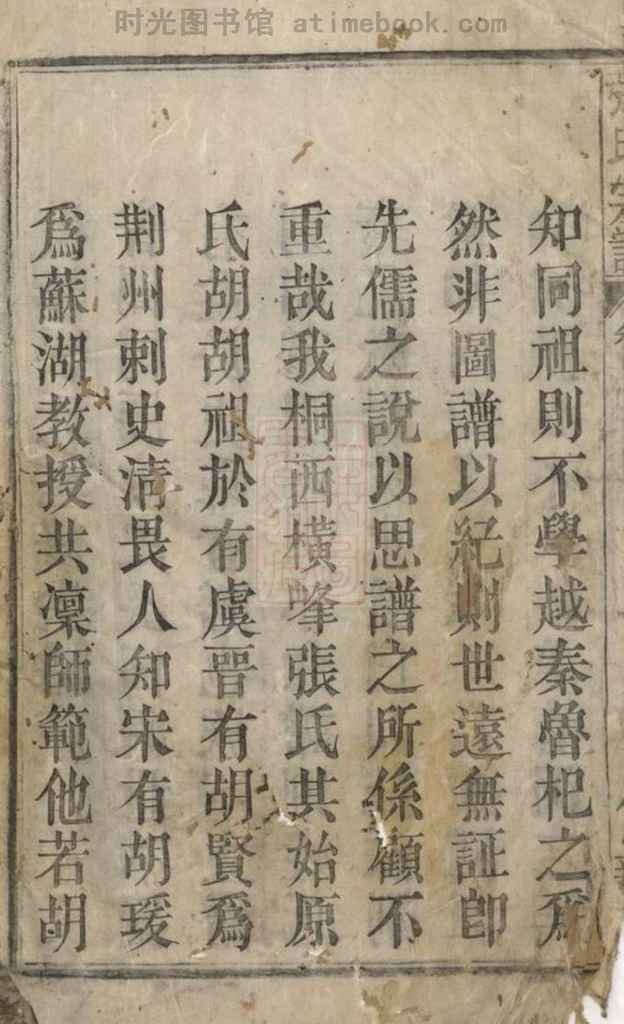 时光图书馆 atimebook.com
知同祖則不學越秦魯杞之爲
然非圖譜以紀則世遠無証卽
先儒之說以思譜之所係顧不
重哉我桐西橫峰張氏其始原
氏胡胡祖於有虞晉有胡賢爲
荆州刺史清畏人知宋有胡瑗
爲蘇湖教授共凜師範他若胡